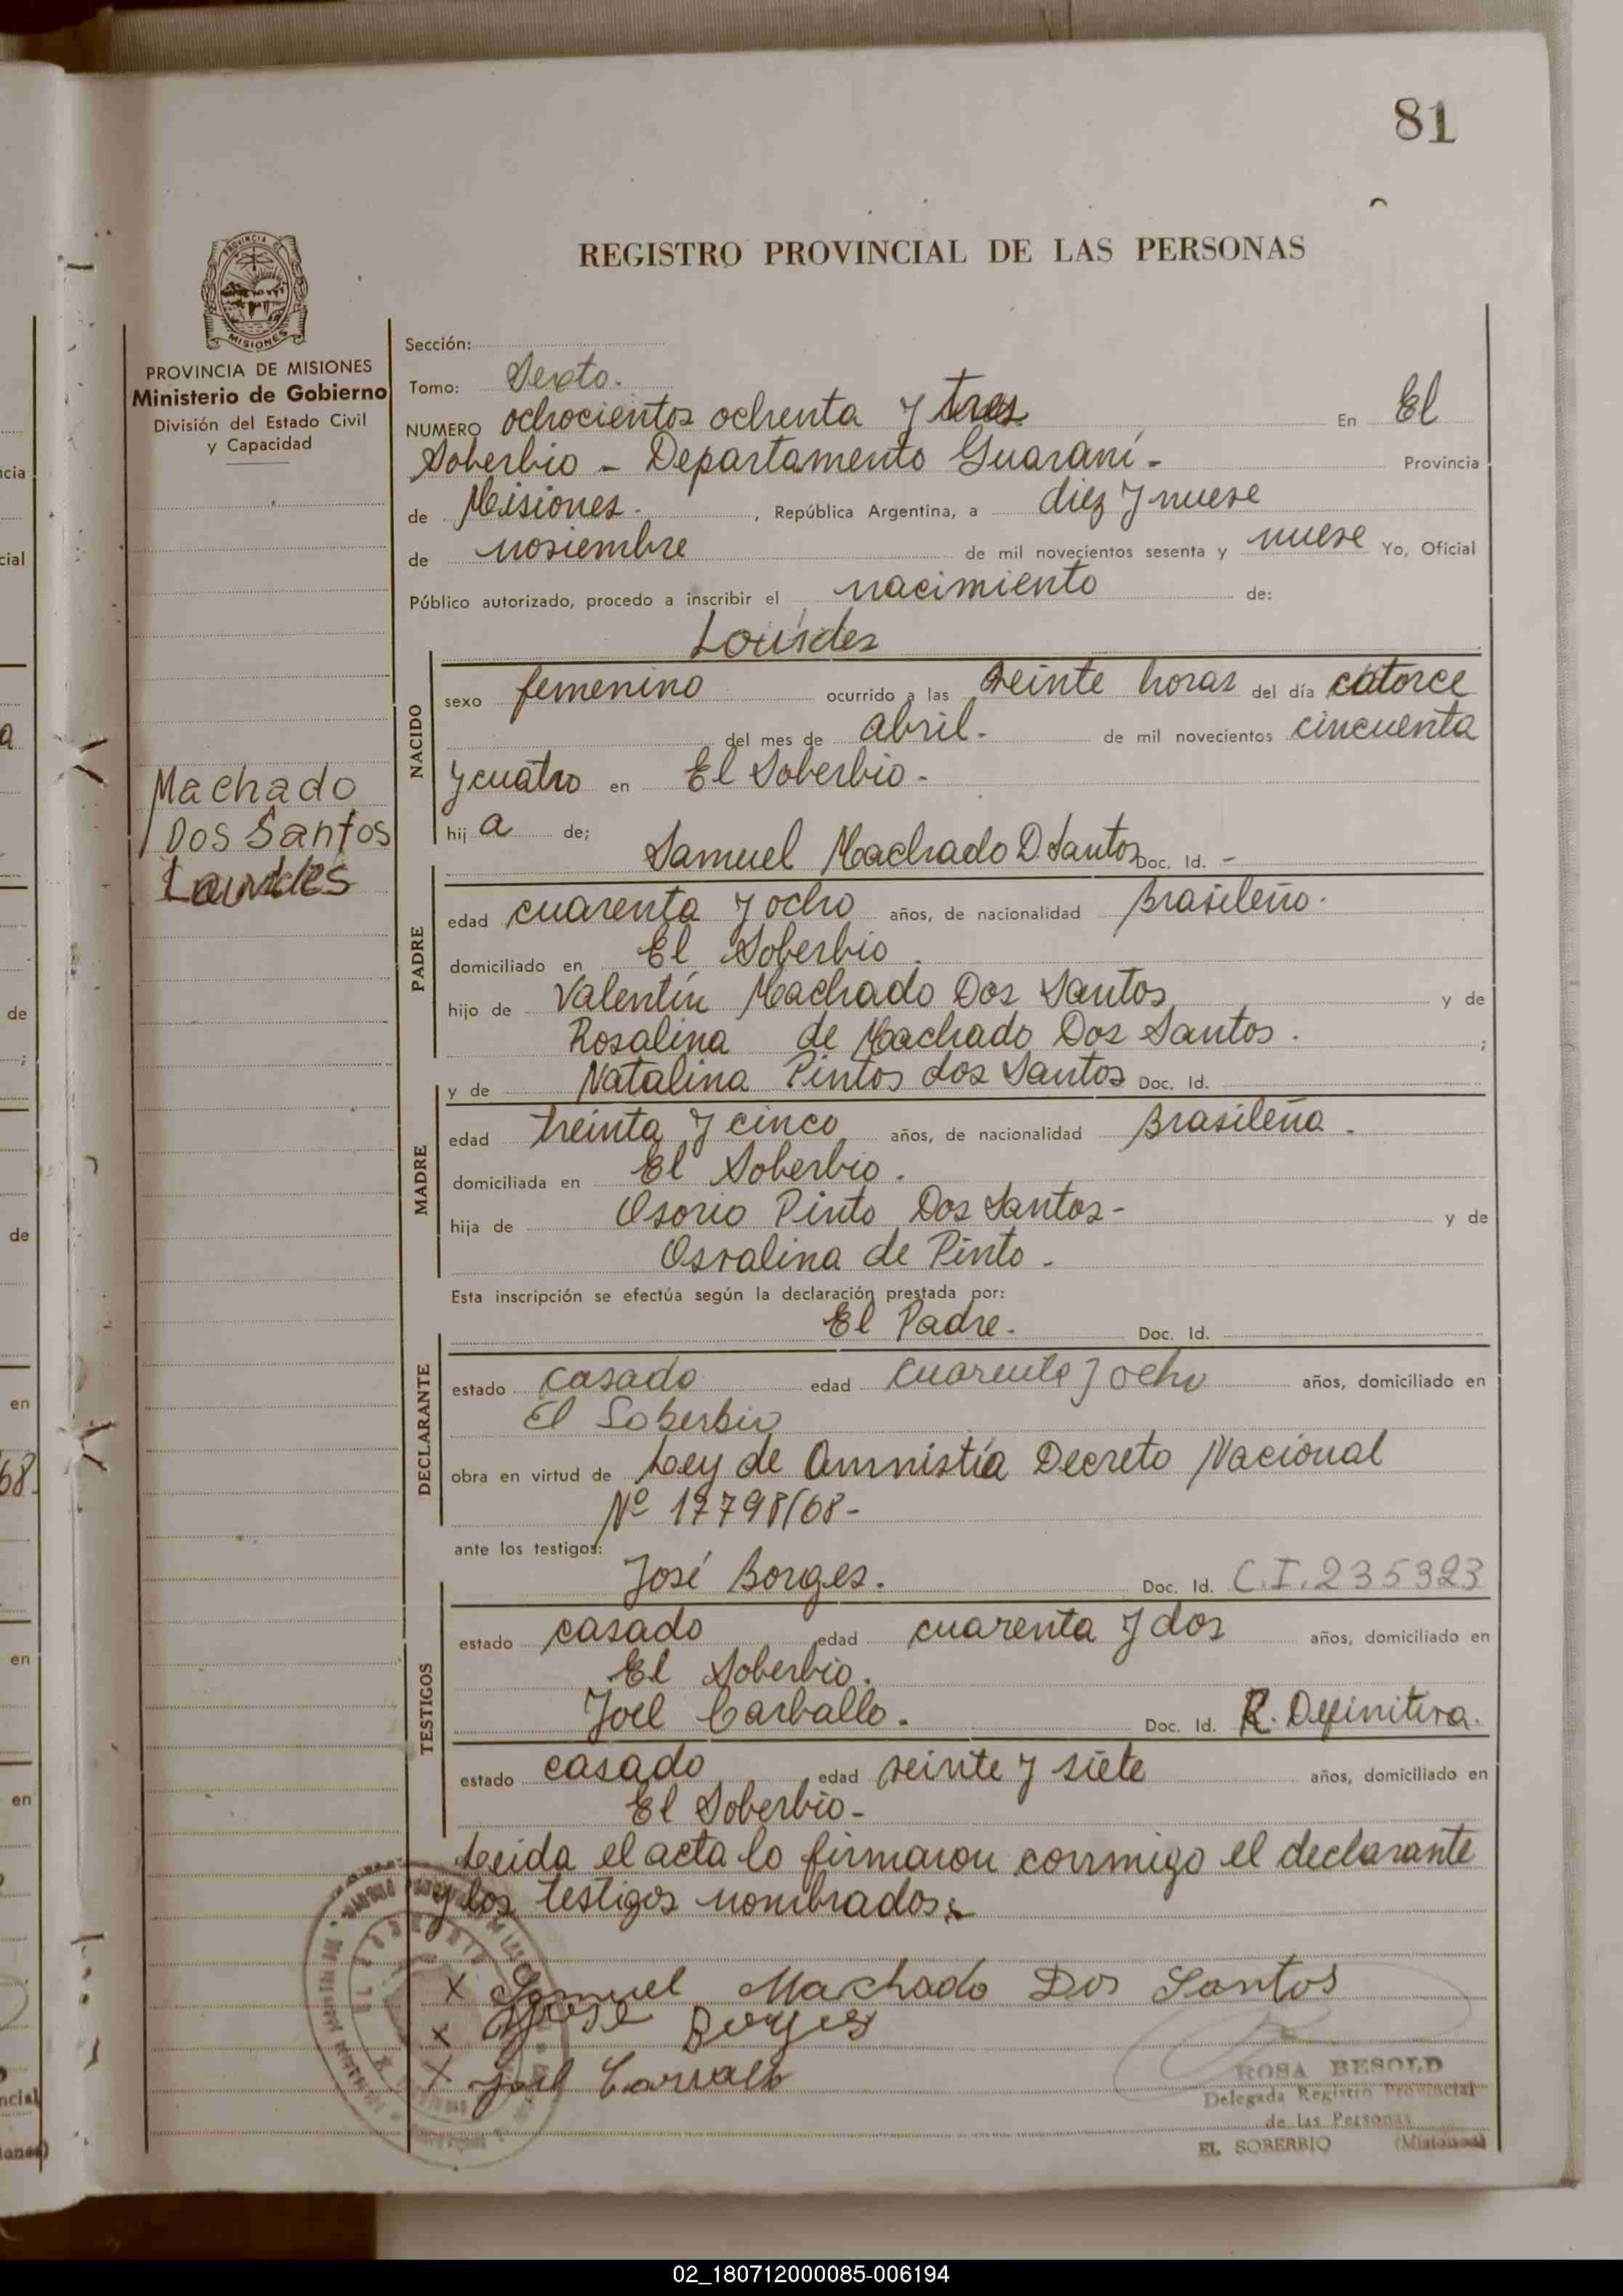 81
REGISTRO PROVINCIAL DE LAS PERSONAS
MISIONES
PROVINCIA DE MISIONES
Ministerio de Gobierno
División del Estado Civil
y Capacidad
Machado
Dos Santos
Lourdes
Sección:
Tomo: Sexto.
NUMERO ochocientos ochenta y tres En El
Soberbio - Departamento Guaraní - Provincia
de Misiones. , República Argentina, a diez y nueve
de noviembre de mil novecientos sesenta y nueve Yo, Oficial
Público autorizado, procedo a inscribir el nacimiento de:
Lourdes
NACIDO
sexo femenino ocurrido a las veinte horas del día catorce
del mes de abril. de mil novecientos cincuenta
y cuatro en El Soberbio -
hij a de;
Samuel Machado D Santos Doc. Id. -
PADRE
edad cuarenta y ocho años, de nacionalidad Brasileño.
domiciliado en El Soberbio.
hijo de Valentín Machado Dos Santos y de
Rosalina de Machado Dos Santos. ;
y de Natalina Pintos dos Santos Doc. Id.
MADRE
edad treinta y cinco años, de nacionalidad Brasileña.
domiciliada en El Soberbio.
hija de Osorio Pinto Dos Santos - y de
Osvalina de Pinto.
Esta inscripción se efectúa según la declaración prestada por:
El Padre. Doc. Id.
DECLARANTE
estado casado edad cuarenta y ocho años, domiciliado en
El Soberbio
obra en virtud de Ley de Amnistía Decreto Nacional
Nº 17798/68-
ante los testigos:
José Borges. Doc. Id. C.I. 235323
TESTIGOS
estado casado edad cuarenta y dos años, domiciliado en
El Soberbio.
Joel Carballo. Doc. Id. R. Definitiva.
estado casado edad veinte y siete años, domiciliado en
El Soberbio-
Leida el acta lo firmaron conmigo el declarante
y los testigos nombrados:
x Samuel Machado Dos Santos
x José Borges
x Joel Carvalh
ROSA BESOLD
Delegada Registro Provincial
de las Personas
EL SOBERBIO (Misiones)
02_180712000085-006194